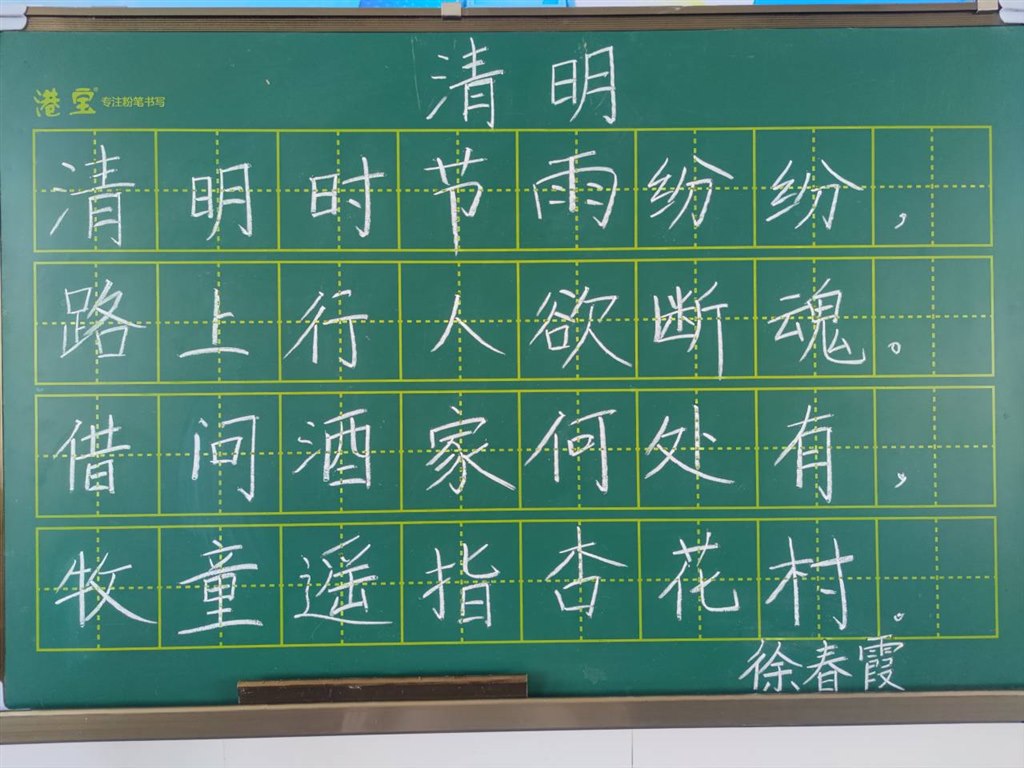 清明
港宝 专注粉笔书写
清明时节雨纷纷，
路上行人欲断魂。
借问酒家何处有，
牧童遥指杏花村。
徐春霞